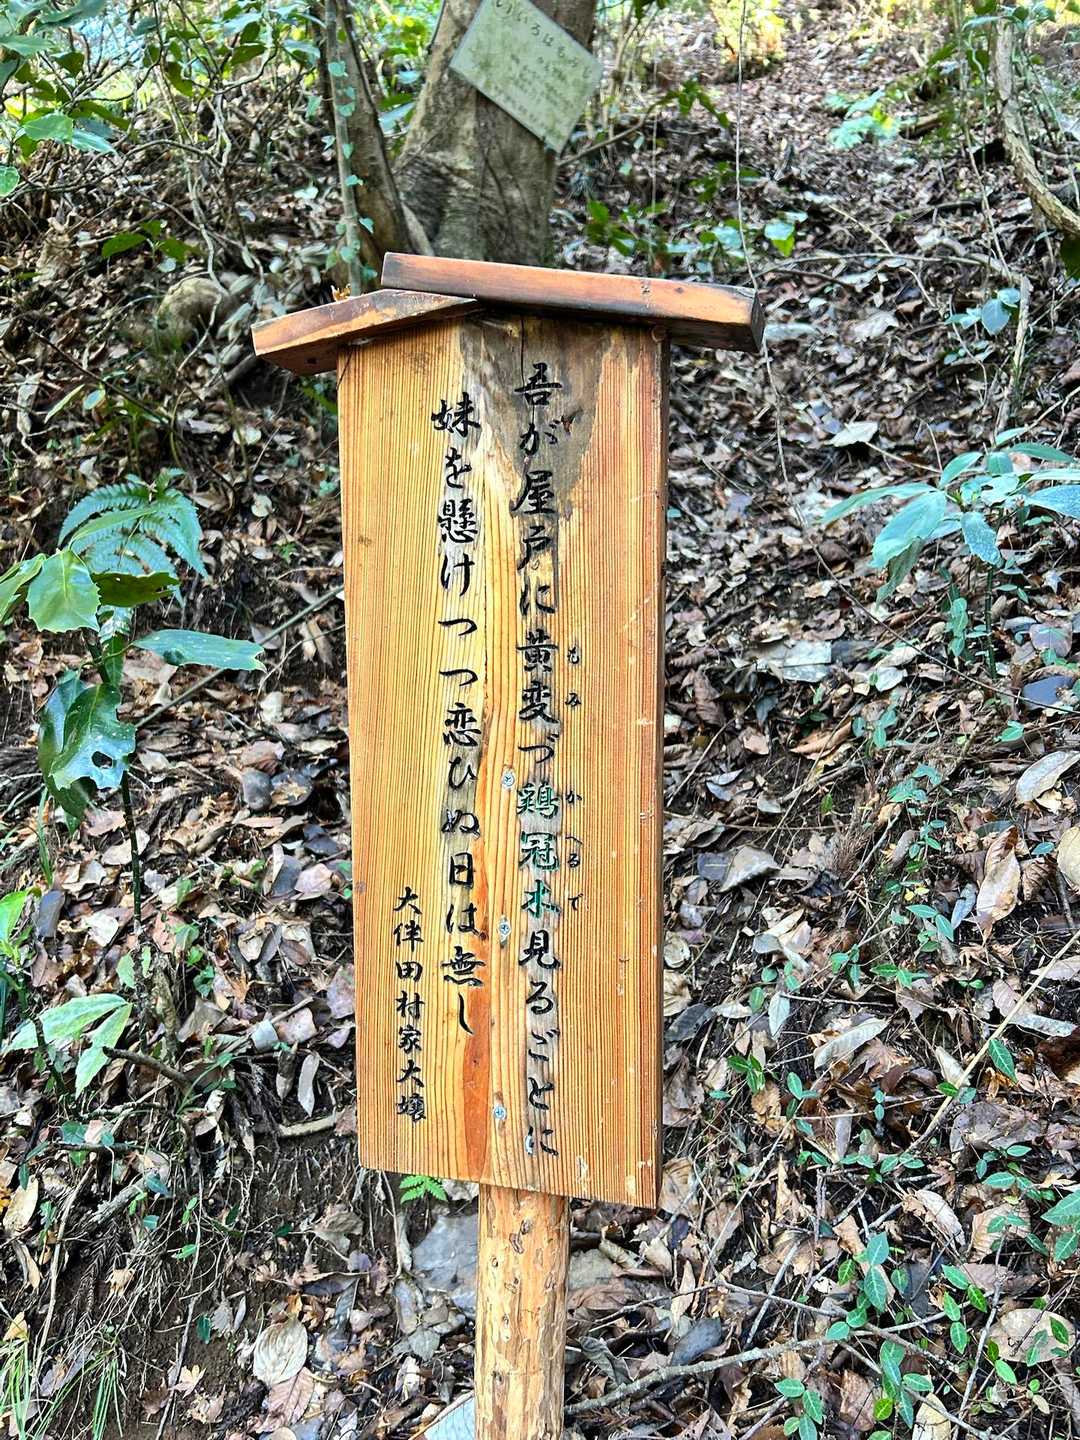 いろはもみじ
吾が屋戸に黄変づ鶏冠木見るごとに
もみ
かへるで
妹を懸けつつ恋ひぬ日は無し
大伴田村家大嬢